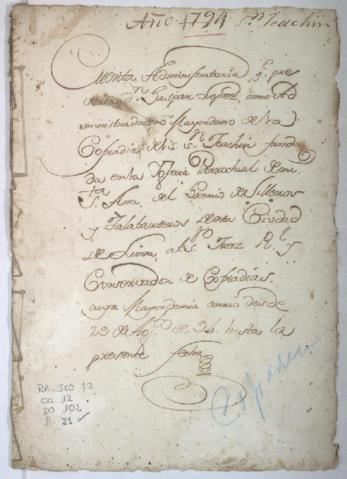 Año 1794 Sn. Joachin
Cuenta Administratoria q.e pre
senta Dn. Gaspar Lopez, como Ad
ministrador y Mayordomo de la
Cofradia del S. Sn. Joachin funda
da en la Yglecia Parrochial de
Sta. Ana, del Gremio de Silleros
y Talabarteros de esta Ciudad
de Lima, al Sor. Juez Rl. y
Conservador de Cofradias.
cuya Mayordomia corrió desde
20 de Agto. de hasta la
presente fecha
Cofradias
RA-JCO 12
CA 12
DO 102
P. 21 ✓